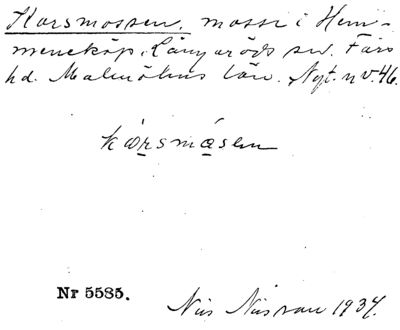 Korsmossen, mosse i Hem-
meneköp, Långaröds sn. Färs
hd. Malmöhus län. Nyt. n v. 46.
kȧrsmȧsen
Nr 5585.
Nils 1937.